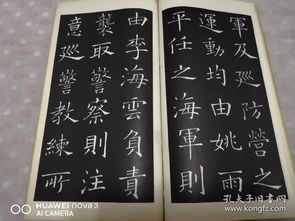 軍及巡防營之
運動均由姚雨
平任之海軍則
由李海雲負責
襲取警察則注
意巡警教練所
HUAWEI nova 3
AI CAMERA
孔夫子旧书网